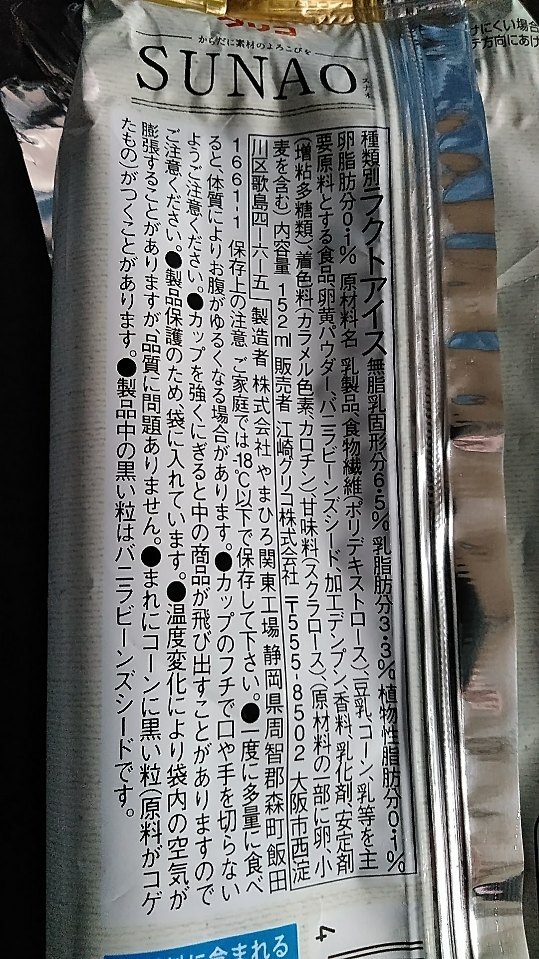 グリコ
からだに素材のよろこびを
SUNAO
スナオ
種類別ラクトアイス 無脂乳固形分6.5% 乳脂肪分3.3% 植物性脂肪分0.1%
卵脂肪分0.1% 原材料名 乳製品、食物繊維(ポリデキストロース)、豆乳、コーン、乳等を主
要原料とする食品、卵黄パウダー、バニラビーンズシード、加工デンプン、香料、乳化剤、安定剤
(増粘多糖類)、着色料(カラメル色素、カロチン)、甘味料(スクラロース)、(原材料の一部に卵、小
麦を含む) 内容量 152ml 販売者 江崎グリコ株式会社 〒555-8502 大阪市西淀
川区歌島四-六-五 製造者 株式会社 やまひろ関東工場 静岡県周智郡森町飯田
1661-1 保存上の注意 ご家庭では-18℃以下で保存して下さい。●一度に多量に食べ
ると、体質によりお腹がゆるくなる場合があります。●カップのフチで口や手を切らない
ようご注意ください。●カップを強くにぎると中の商品が飛び出すことがありますので
ご注意ください。●製品保護のため袋に入れています。●温度変化により袋内の空気が
膨張することがありますが、品質に問題ありません。●まれにコーンに黒い粒(原料がコゲ
たもの)がつくことがあります。●製品中の黒い粒はバニラビーンズシードです。
けにくい場合
テ方向にあけ
に含まれる
4